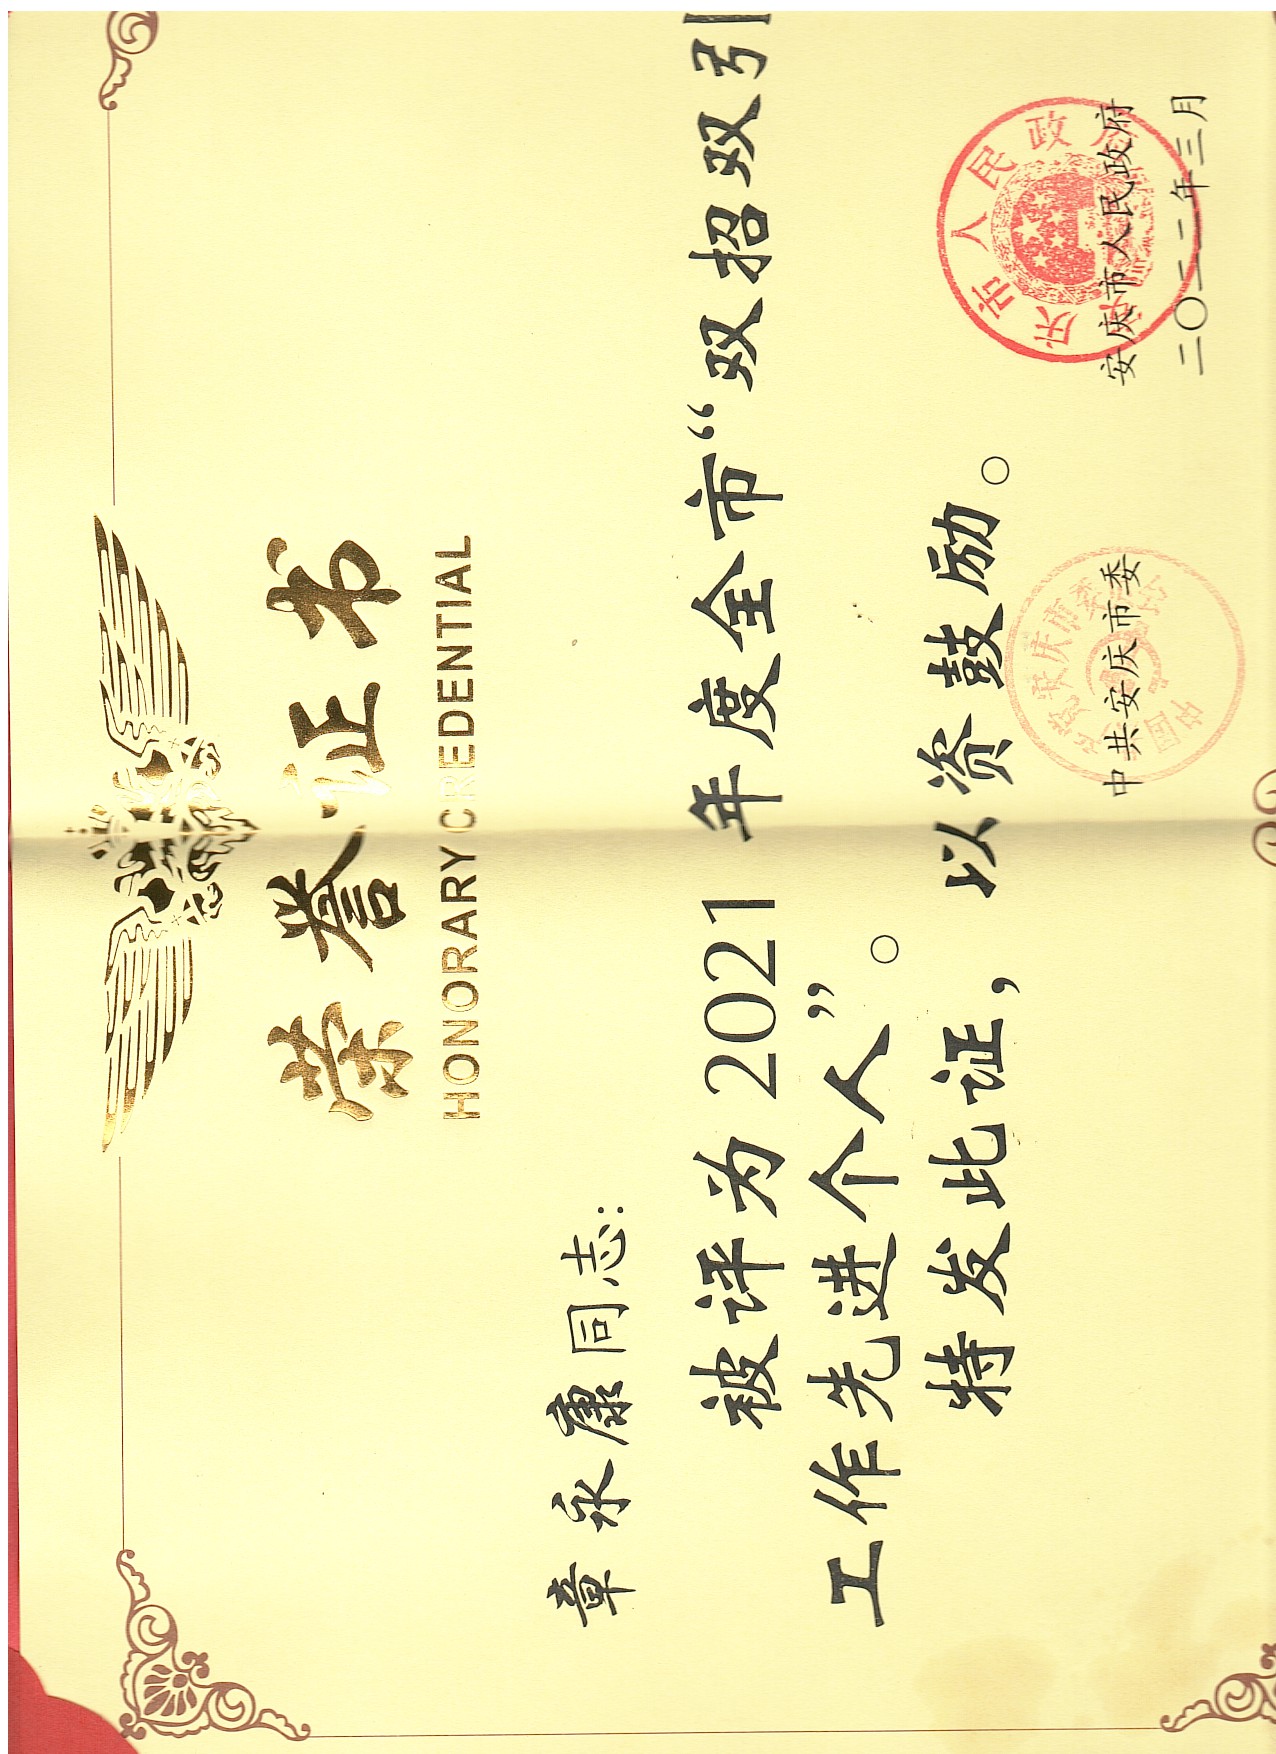 荣誉证书
HONORARY CREDENTIAL
章永康同志：
被评为2021年度全市“双招双引
工作先进个人”。
特发此证，以资鼓励。
中共安庆市委
安庆市人民政府
二〇二二年三月
中国共产党安庆市委员会
安庆市人民政府